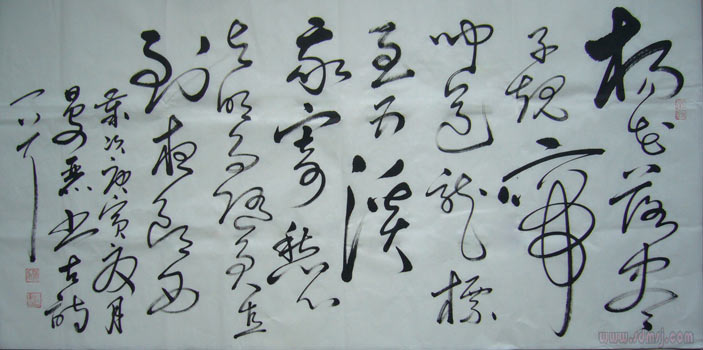 杨花落尽
子规啼
闻道龙标
过五溪
我寄愁心
与明月随君直
到夜郎西
岁次庚寅夏月
书古诗
一首
www.sdmsj.com